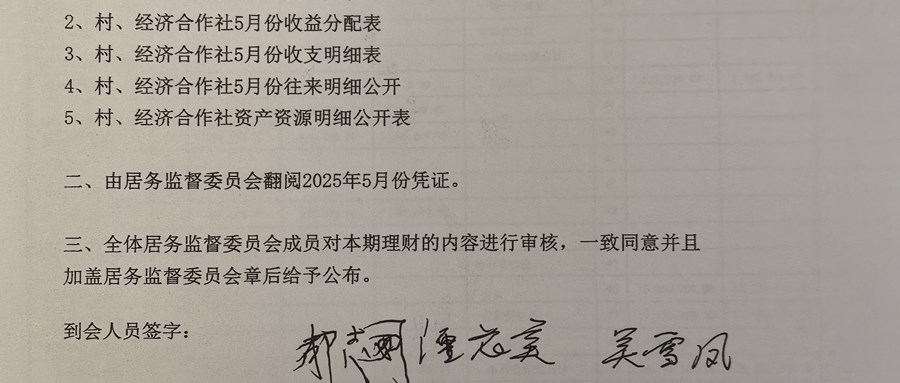 2、村、经济合作社5月份收益分配表
3、村、经济合作社5月份收支明细表
4、村、经济合作社5月份往来明细公开
5、村、经济合作社资产资源明细公开表
二、由居务监督委员会翻阅2025年5月份凭证。
三、全体居务监督委员会成员对本期理财的内容进行审核，一致同意并且
加盖居务监督委员会章后给予公布。
到会人员签字： 吴雪凤